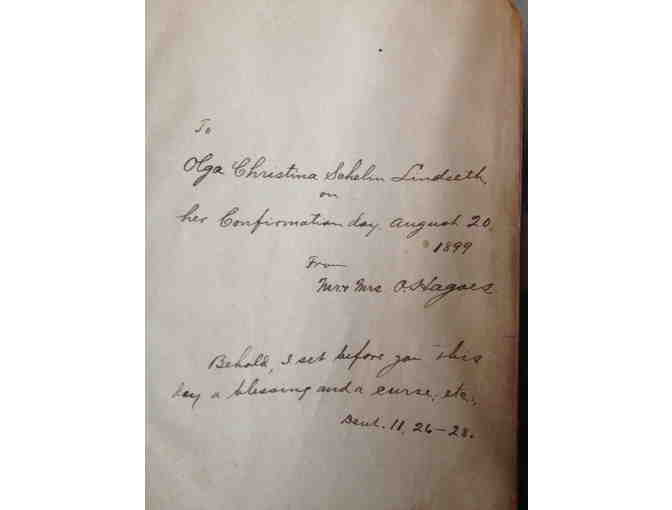 To
Olga Christina Sehelin Lindseth,
on
her Confirmation day, August 20,
1899
From
Mr & Mrs O. Hagoes
Behold, I set before you this
day a blessing and a curse, etc.,
Deut. 11, 26-28.